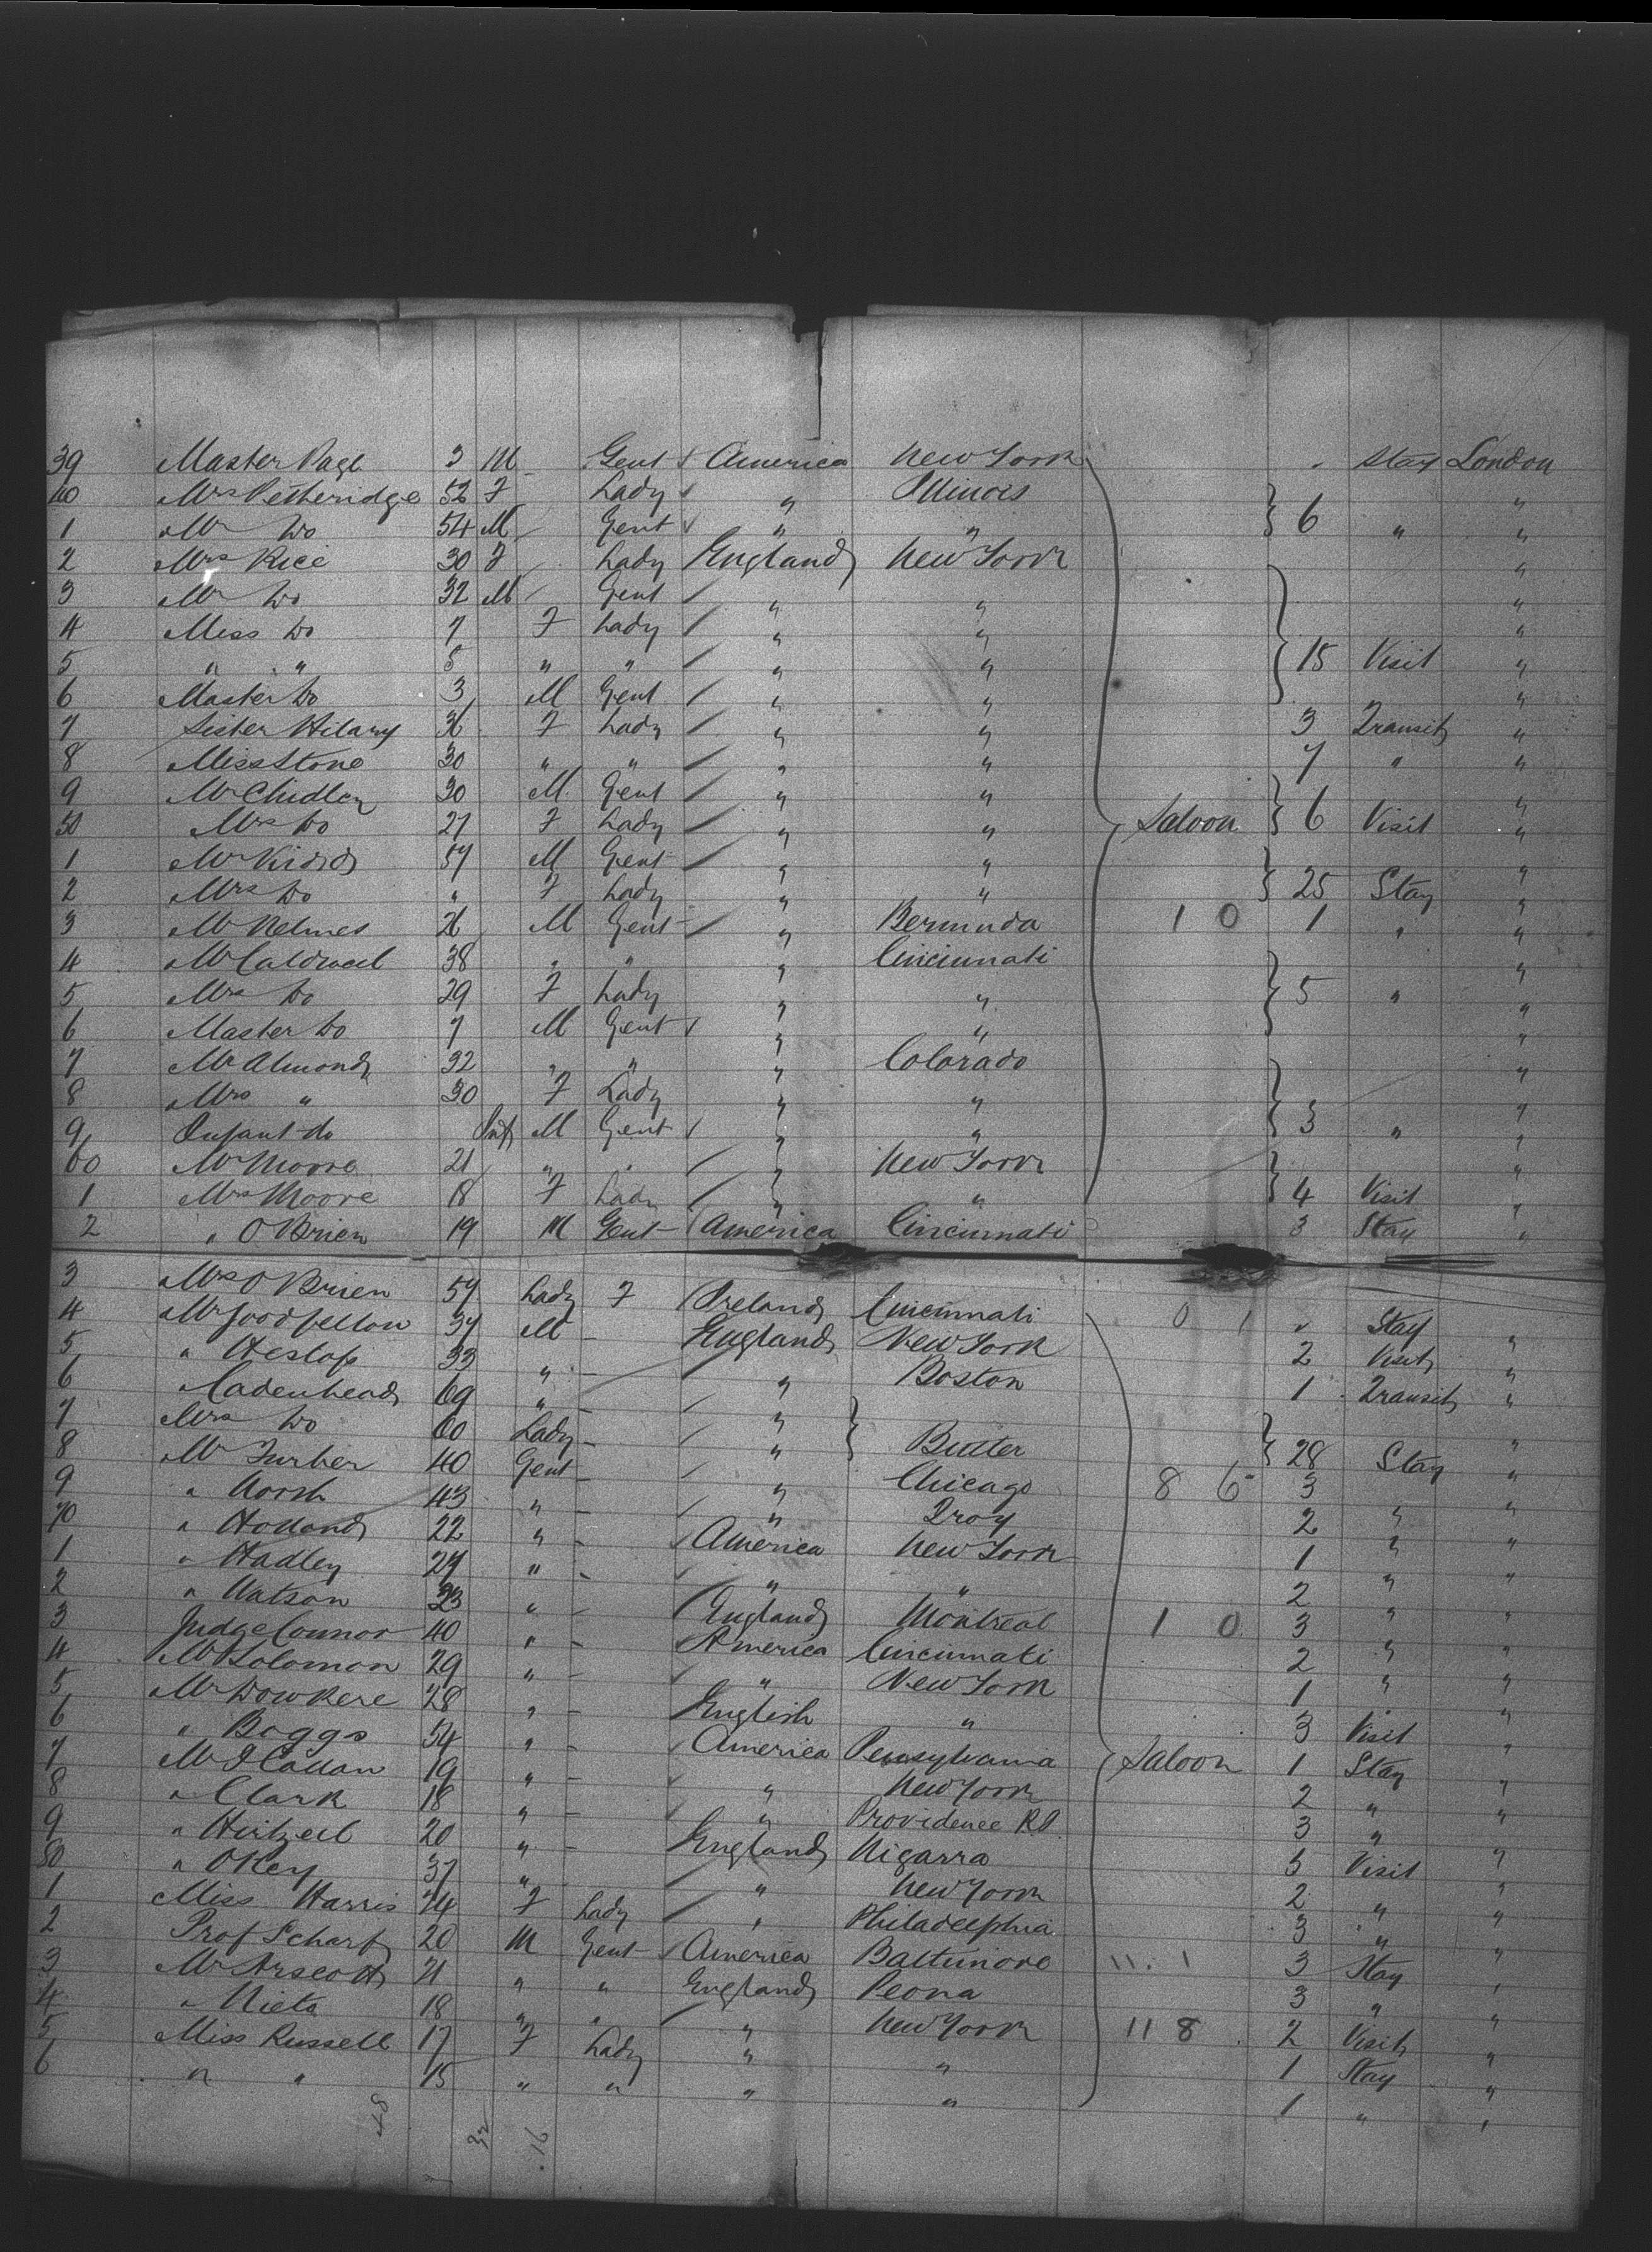 39 Master Page 3 M Gent America New York - Stay London
40 Mrs Petheridge 52 F Lady " Illinois "
1 Mr Do 54 M Gent " " 6 " "
2 Mrs Rice 30 F Lady England New York "
3 Mr Do 32 M Gent " " "
4 Miss Do 7 F Lady " " "
5 " " 5 " " " " 15 Visit "
6 Master Do 3 M Gent " " "
7 Sister Hilary 36 F Lady " " 3 Transit "
8 Miss Stone 30 " " " " 7 " "
9 Mr Chidley 30 M Gent " " "
50 Mrs Do 27 F Lady " " Saloon 6 Visit "
1 Mr 57 M Gent " " "
2 Mrs Do " F Lady " " 25 Stay "
3 Mr Nelmes 26 M Gent " Bermuda 1 0 1 " "
4 Mr Caldwell 38 " " " Cincinnati "
5 Mrs Do 29 F Lady " " 5 " "
6 Master Do 7 M Gent " " "
7 Mr Almond 32 " " " Colorado "
8 Mrs " 30 F Lady " " "
9 Infant do Inf M Gent " " 3 " "
60 Mr Moore 21 " " " New York "
1 Mrs Moore 18 F Lady " " 4 Visit "
2 " O'Brien 19 M Gent America Cincinnati 3 Stay "
3 Mrs O'Brien 57 Lady F Ireland Cincinnati 0 1 " Stay "
4 Mr Goodfellow 37 M England New York 2 Visit "
5 " Heslop 33 " " Boston 1 Transit "
6 " Cadenhead 69 " "
7 Mrs Do 60 Lady " Butler 28 Stay "
8 Mr Furber 40 Gent " Chicago 8 6 3 "
9 " 43 " " Troy 2 " "
70 " Holland 22 " America New York 1 " "
1 " Hadley 27 " " " 2 " "
2 " Watson 23 " England Montreal 1 0 3 " "
3 Judge Connor 40 " America Cincinnati 2 " "
4 Mr Solomon 29 " " New York 1 " "
5 Mr Dowkere 28 " English " 3 Visit "
6 " Boggs 54 " America Pensylvania Saloon 1 Stay "
7 Mr J Callan 19 " " New York 2 " "
8 " Clark 18 " " Providence RI 3 " "
9 " Hirtzeil 20 " England Nigarra 5 Visit "
80 " OKey 37 " " New York 2 " "
1 Miss Harris 24 F Lady " Philadelphia 3 " "
2 Prof Scharf 20 M Gent America Baltimore 11. 1 3 Stay "
3 Mr Arscott 21 " " England Peona 3 " "
4 " Nieto 18 " " " New York 11 8 2 Visit "
5 Miss Russell 17 F Lady " " 1 Stay "
6 " " 15 " " " " 1 " "
48 32 16